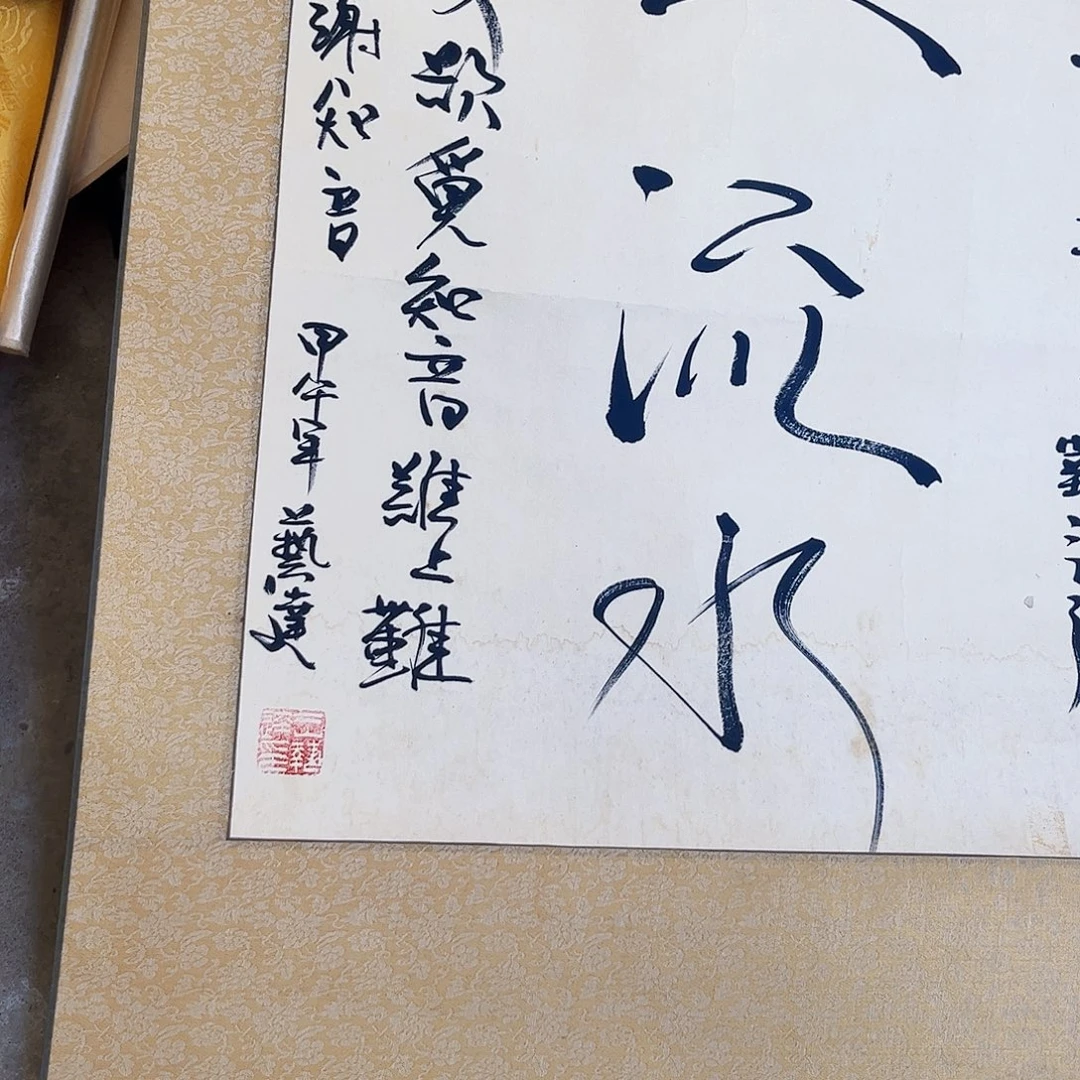 劉
流水
欲覓知音難上難
謝知音 甲午年 藝達